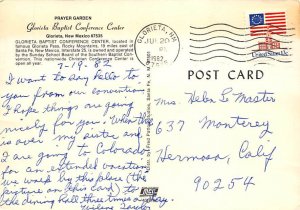 PRAYER GARDEN
Glorieta Baptist Conference Center
Glorieta, New Mexico 87535
GLORIETA BAPTIST CONFERENCE CENTER, located in
famous Glorieta Pass, Rocky Mountains, 18 miles east of
Santa Fe, NM, Interstate 25, is owned and operated
by the Sunday School Board of the Southern Baptist
Convention.
7-19-82
I want to say hello to
you from our convention
I hope things are going
nicely for you. When this
is over my sister and
I are going to Colorado
for an extended vacation
we walk by this place (the
picture on this card) to
the dining hall three times a day.
GLORIETA, NM
JUL 20
1982
United States
POST CARD
Mrs. Helen L. Master
637 Monterey
Hermosa, Calif
90254